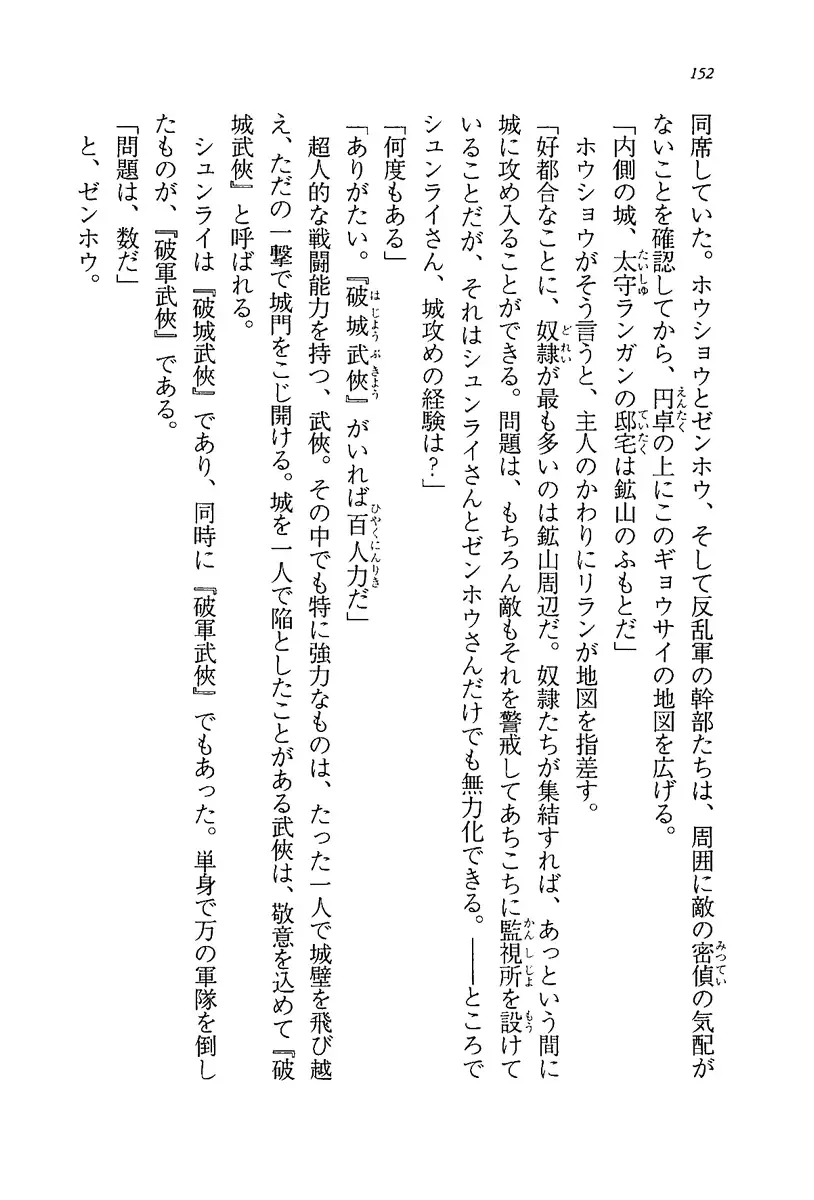 152
同席していた。ホウショウとゼンホウ、そして反乱軍の幹部たちは、周囲に敵の密偵の気配が
ないことを確認してから、円卓の上にこのギョウサイの地図を広げる。
「内側の城、太守ランガンの邸宅は鉱山のふもとだ」
ホウショウがそう言うと、主人のかわりにリランが地図を指差す。
「好都合なことに、奴隷が最も多いのは鉱山周辺だ。奴隷たちが集結すれば、あっという間に
城に攻め入ることができる。問題は、もちろん敵もそれを警戒してあちこちに監視所を設けて
いることだが、それはシュンライさんとゼンホウさんだけでも無力化できる。――ところで
シュンライさん、城攻めの経験は?」
「何度もある」
「ありがたい。『破城武侠』がいれば百人力だ」
超人的な戦闘能力を持つ、武侠。その中でも特に強力なものは、たった一人で城壁を飛び越
え、ただの一撃で城門をこじ開ける。城を一人で陥としたことがある武侠は、敬意を込めて『破
城武侠』と呼ばれる。
シュンライは『破城武侠』であり、同時に『破軍武侠』でもあった。単身で万の軍隊を倒し
たものが、『破軍武侠』である。
「問題は、数だ」
と、ゼンホウ。